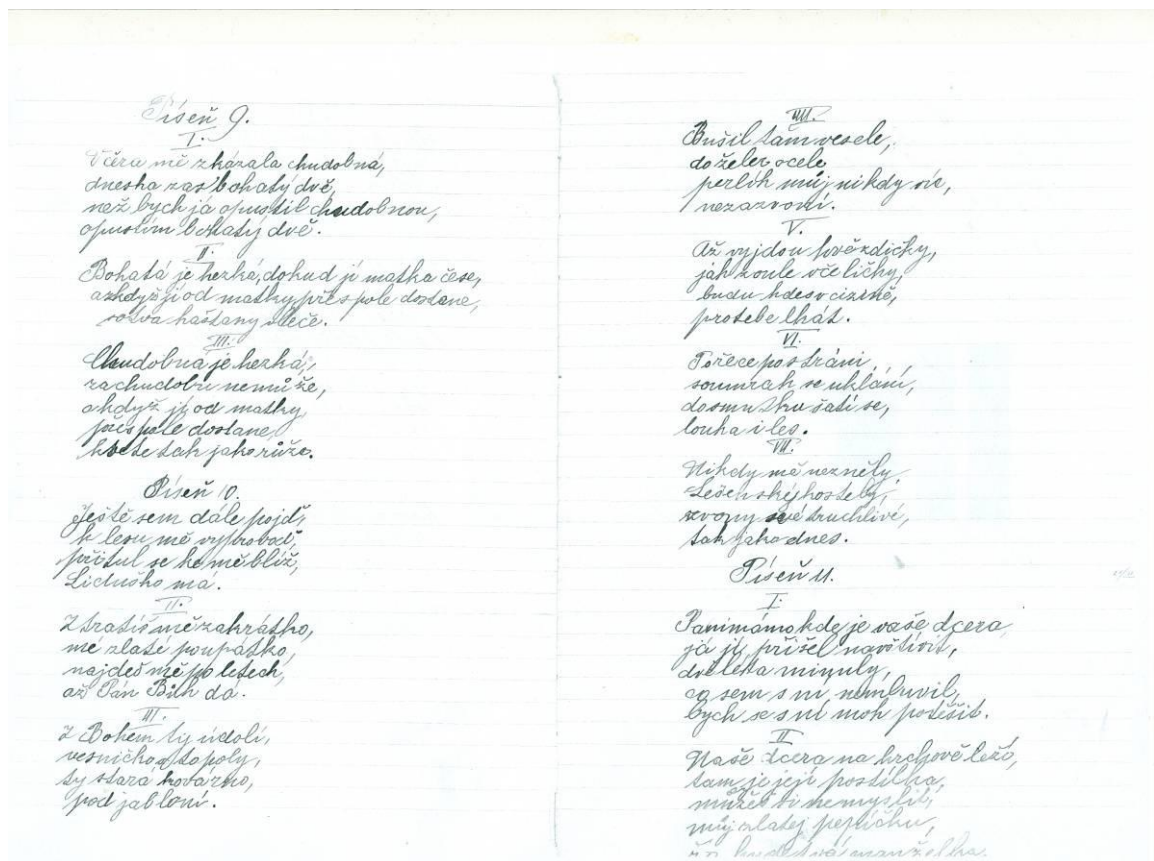 Píseň 9.
I.
Včera mě zkázala chudobná,
dneska zas bohatý dvě,
než bych já opustil chudobnou,
opustím bohatý dvě.
II.
Bohatá je hezká, dokud jí matka češe,
a když jí od matky, přes pole dostane,
sotva kaštany vleče.
III.
Chudobná je hezká,
za chudobu nemůže,
a když jí od matky
přes pole dostane,
kvete tak jako růže.
Píseň 10.
Ještě sem dále pojď,
k lesu mě vyprovoď,
přitul se ke mě blíž,
Liduško má.
II.
Ztratíš mě zakrátko,
mé zlaté poupátko,
najdeš mě po letech,
až Pán Bůh dá.
III.
Z Bohem ty údolí,
vesničko s topoly,
ty stará kovárno,
pod jabloní.
IIII.
Bušil tam vesele,
do želez ocele
perlík můj nikdy víc,
nezazvoní.
V.
Až vyjdou hvězdičky,
jak zoule včeličky,
budu kdes v cizině,
pro tebe lkát.
VI.
Po řece po stráni,
soumrak se uklání,
do smutku šatí se,
louka i les.
VII.
Nikdy mě nezněly,
Lešenský kostely,
zvony své truchlivé,
tak jako dnes.
Píseň 11.
I.
Panimámo kde je vaše dcera,
já jí přišel navštívit,
dvě léta minuly,
co sem s ní nemluvil,
bych se s ní moh potěšit.
II
Naše dcera na krchově leží,
tam je její postýlka,
můžeš si nemyslit,
můj zlatej pepíčku,